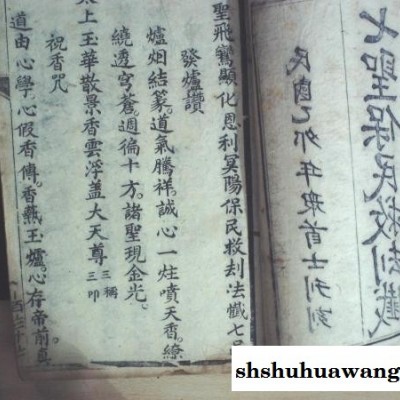 七聖保民救刧懺
民國卯年眾首士刊刻
聖飛鸞顯化恩利冥陽保民救刧法懺七
發爐讚
爐烟結篆。道氣騰祥。誠心一炷噴天香。繚
繞透穹蒼。週徧十方。諸聖現金光。
太上玉華散景香雲浮蓋大天尊 三稱三叩
祝香咒
道由心學心假香傳。香爇玉爐。心存帝前。真
shshuhuawang